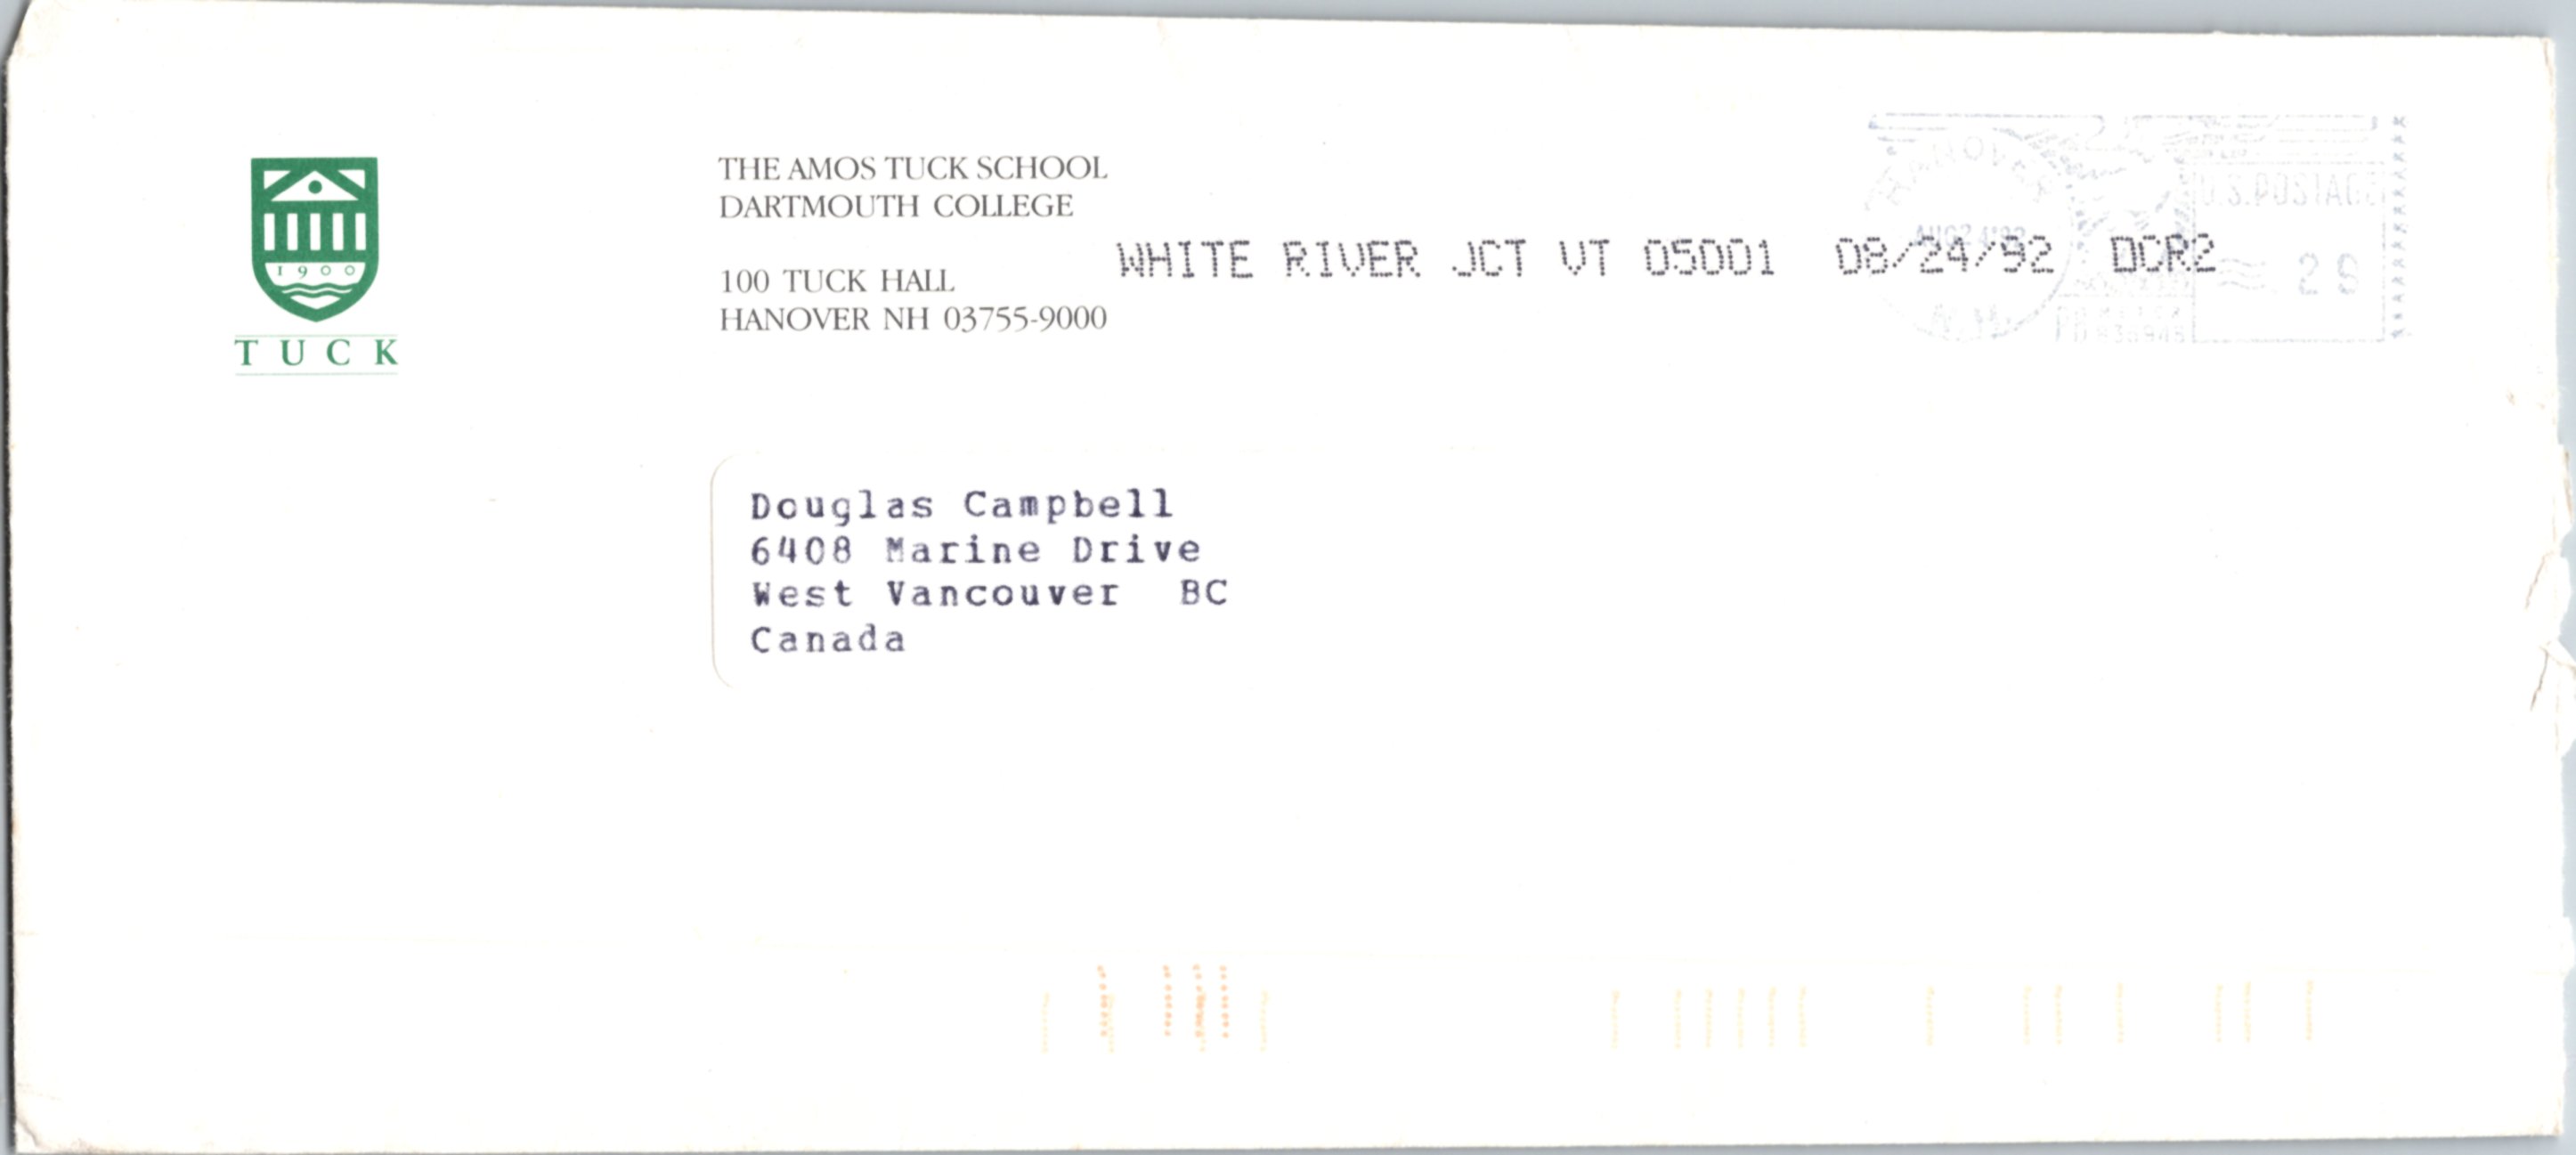 1900
TUCK
THE AMOS TUCK SCHOOL
DARTMOUTH COLLEGE
100 TUCK HALL
HANOVER NH 03755-9000
WHITE RIVER JCT VT 05001 08/24/92 DCR2
HANOVER
AUG24'92
N.H.
U.S.POSTAGE
Douglas Campbell
6408 Marine Drive
West Vancouver BC
Canada